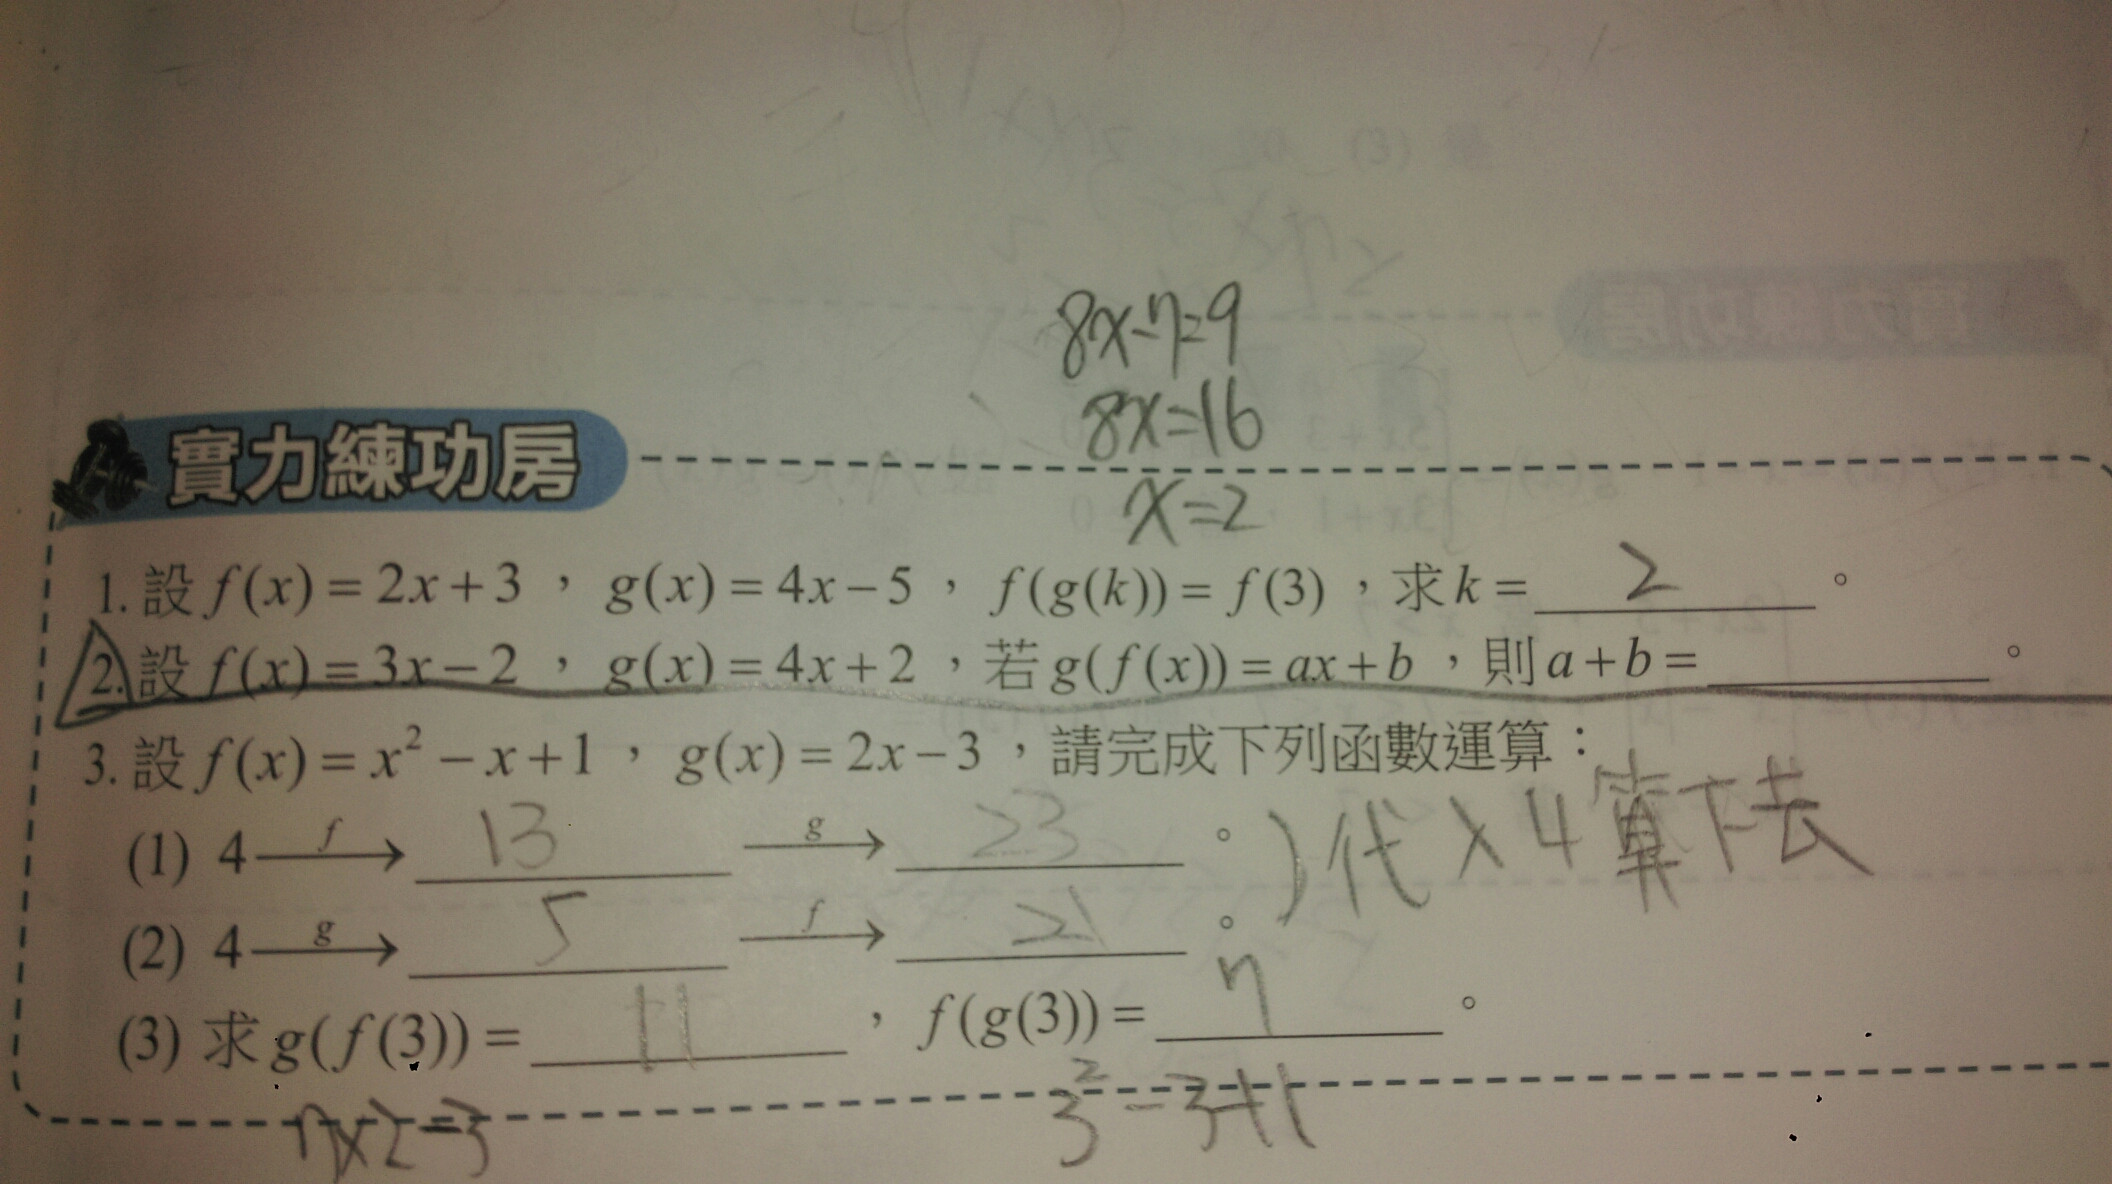 8x-7=9
8x=16
x=2
實力練功房
1. 設 f(x)=2x+3，g(x)=4x-5，f(g(k))=f(3)，求 k= 2 。
2. 設 f(x)=3x-2，g(x)=4x+2，若 g(f(x))=ax+b，則 a+b=＿＿＿。
3. 設 f(x)=x²-x+1，g(x)=2x-3，請完成下列函數運算：
(1) 4 —f→ 13 —g→ 23 。
)代入4算下去
(2) 4 —g→ 5 —f→ 21 。
(3) 求 g(f(3))= 11 ，f(g(3))= 7 。
7x2-3 3²-3+1